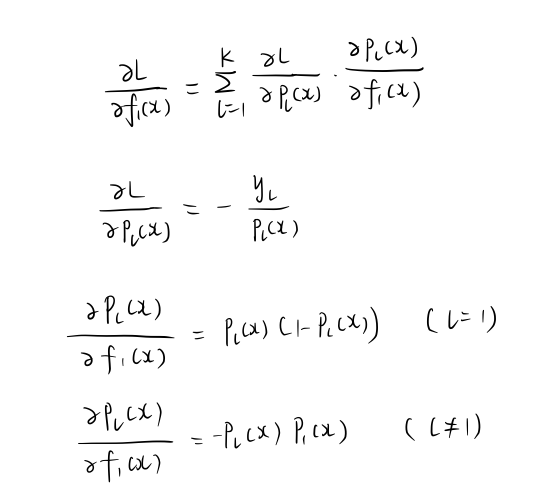 ∂L/∂f₁(x) = Σ_{l=1}^{K} ∂L/∂P_l(x) · ∂P_l(x)/∂f₁(x)
∂L/∂P_l(x) = - y_l/P_l(x)
∂P_l(x)/∂f₁(x) = P_l(x) (1-P_l(x)) (l=1)
∂P_l(x)/∂f₁(x) = -P_l(x) P₁(x) (l≠1)